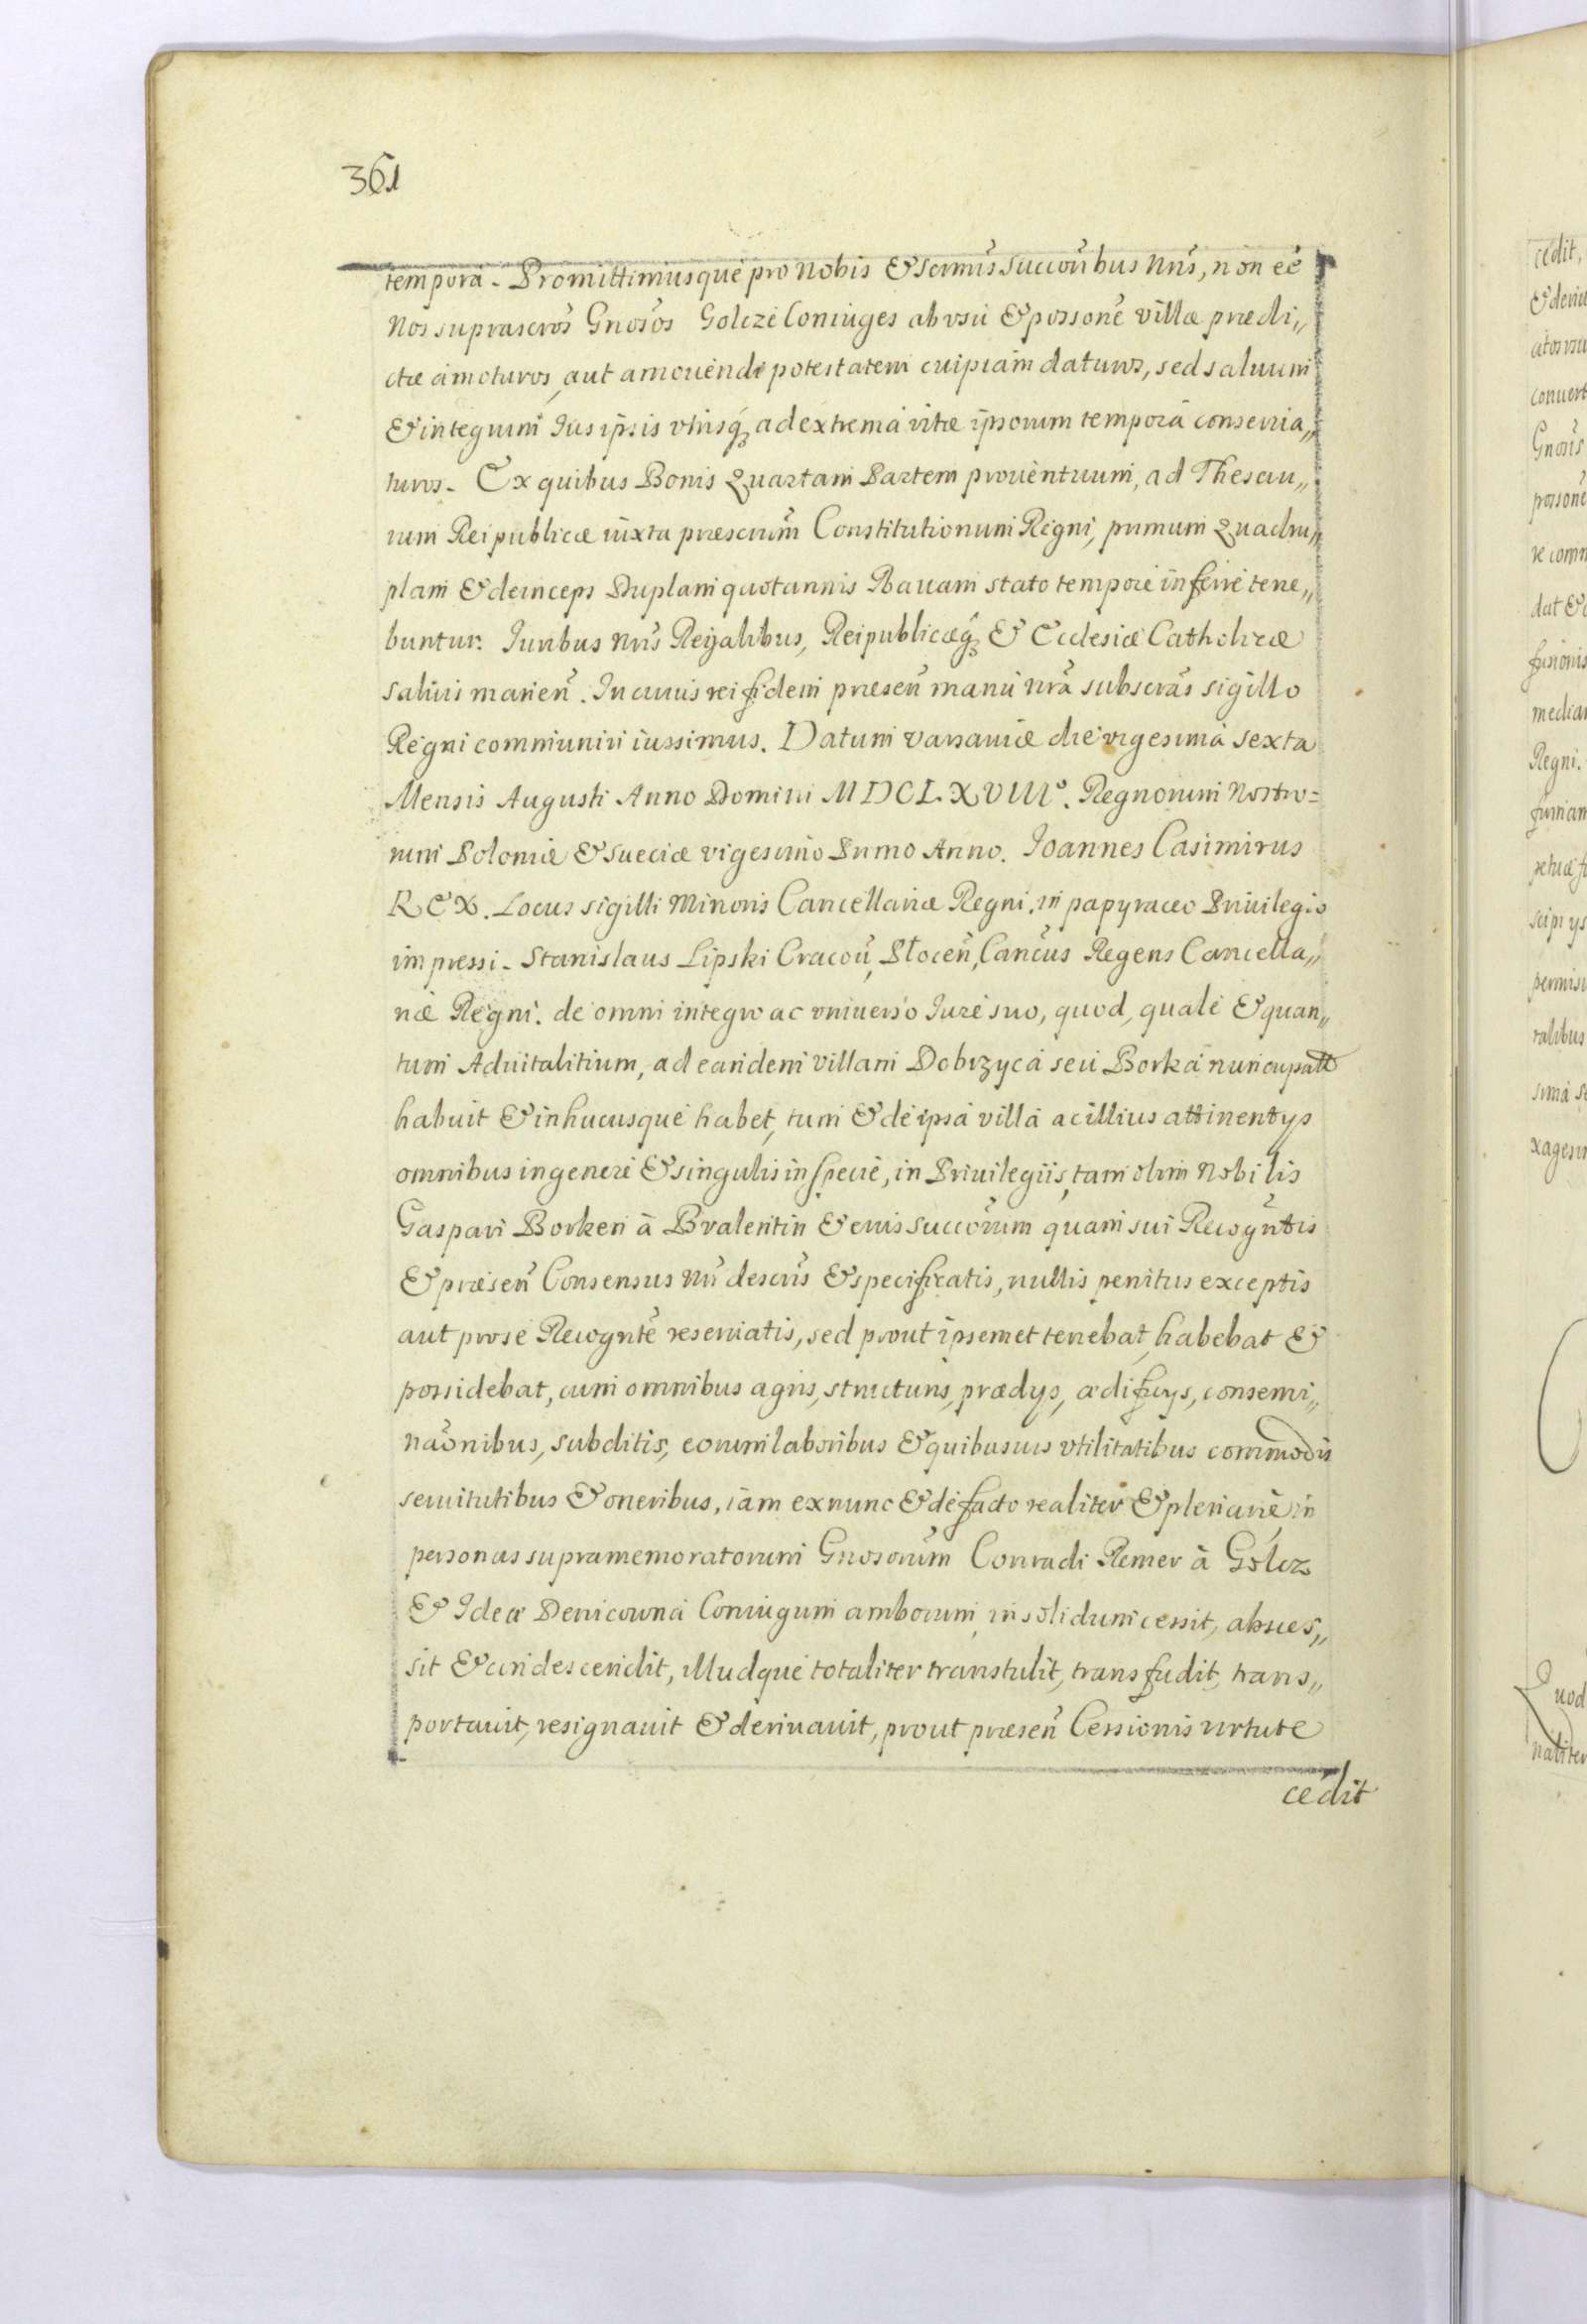 361
tempora. Promittimusque pro Nobis & sermis Succoribus Nris, non eẽ
Nos suprascros Gnosos Golcze Coniuges ab vsu & possone villæ prædi„
ctæ amoturos, aut amouendi potestatem cuipiam daturos, sed saluum
& integrum Ius ipsis vtrisq; ad extrema vitæ ipsorum tempora conserua„
turos. Ex quibus Bonis Quartam Partem prouentuum, ad Thesau„
rum Reipublicæ iuxta præscrum Constitutionum Regni, primum Quadru„
plam & deinceps Duplam quotannis Rauam stato tempore inferre tene„
buntur. Iuribus Nris Regalibus, Reipublicæq; & Ecclesiæ Catholicæ
saluis maneñ. In cuius rei fidem præseñ manu nrã subscras sigillo
Regni communiri iussimus. Datum Varsauiæ die vigesima sexta
Mensis Augusti Anno Domini MDCLXVIIIº. Regnorum Nostro=
rum Poloniæ & Sueciæ vigesimo Primo Anno. Ioannes Casimirus
REX. Locus sigilli Minoris Cancellariæ Regni, in papyraceo Priuilegio
impressi. Stanislaus Lipski Cracoũ, Ploceñ, Cancus Regens Cancella„
riæ Regni. de omni integro ac vniuerso Iure suo, quod, quale & quan„
tum Aduitalitium, ad eandem villam Dobrzyca seu Borka nuncupatt
habuit & inhucusque habet, tum & de ipsa villa ac illius attinentys
omnibus in genere & singulis in specie, in Priuilegiis, tam olim Nobilis
Gaspari Borken à Bvalentin & eius Succorum quam sui Recogntis
& præseñ Consensus Nri descris & specificatis, nullis penitus exceptis
aut pro se Recognte reseruatis, sed prout ipsemet tenebat, habebat &
possidebat, cum omnibus agris, structuris, prædys, ædificys, consemi„
naonibus, subditis, eorum laboribus & quibusuis vtilitatibus commodis
seruitutibus & oneribus, iam ex nunc & de facto realiter & plenarie in
personas supramemoratorum Gnosorum Conradi Remer à Golcz
& Ideæ Denicowna Coniugum amborum, in solidum cessit, absces„
sit & condescendit, illudque totaliter transtulit, transfudit, trans„
portauit, resignauit & deriuauit, prout præseñ Cessionis virtute
cedit